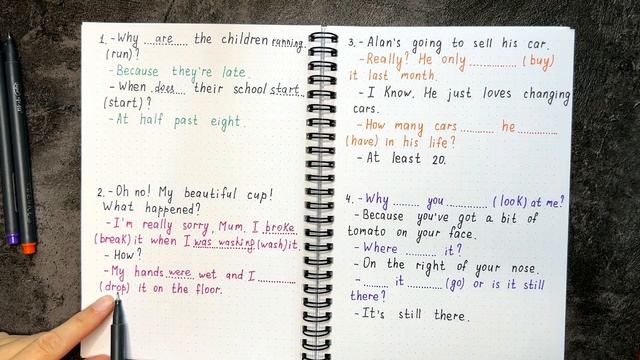 1. - Why ...are... the children running.
(run)?
- Because they're late.
- When .does.... their school start...
(start)?
- At half past eight.
2. - Oh no! My beautiful cup!
What happened?
- I'm really sorry, Mum. I .broke
(break) it when I was washing (wash) it.
- How?
- My hands were wet and I ............
(drop) it on the floor.
3. - Alan's going to sell his car.
- Really? He only ............ (buy)
it last month.
- I know. He just loves changing
cars.
- How many cars ......... he ...........
(have) in his life?
- At least 20.
4. - Why ........ you ........... (look) at me?
- Because you've got a bit of
tomato on your face.
- Where ......... it?
- On the right of your nose.
- ....... it .......... (go) or is it still
there?
- It's still there.